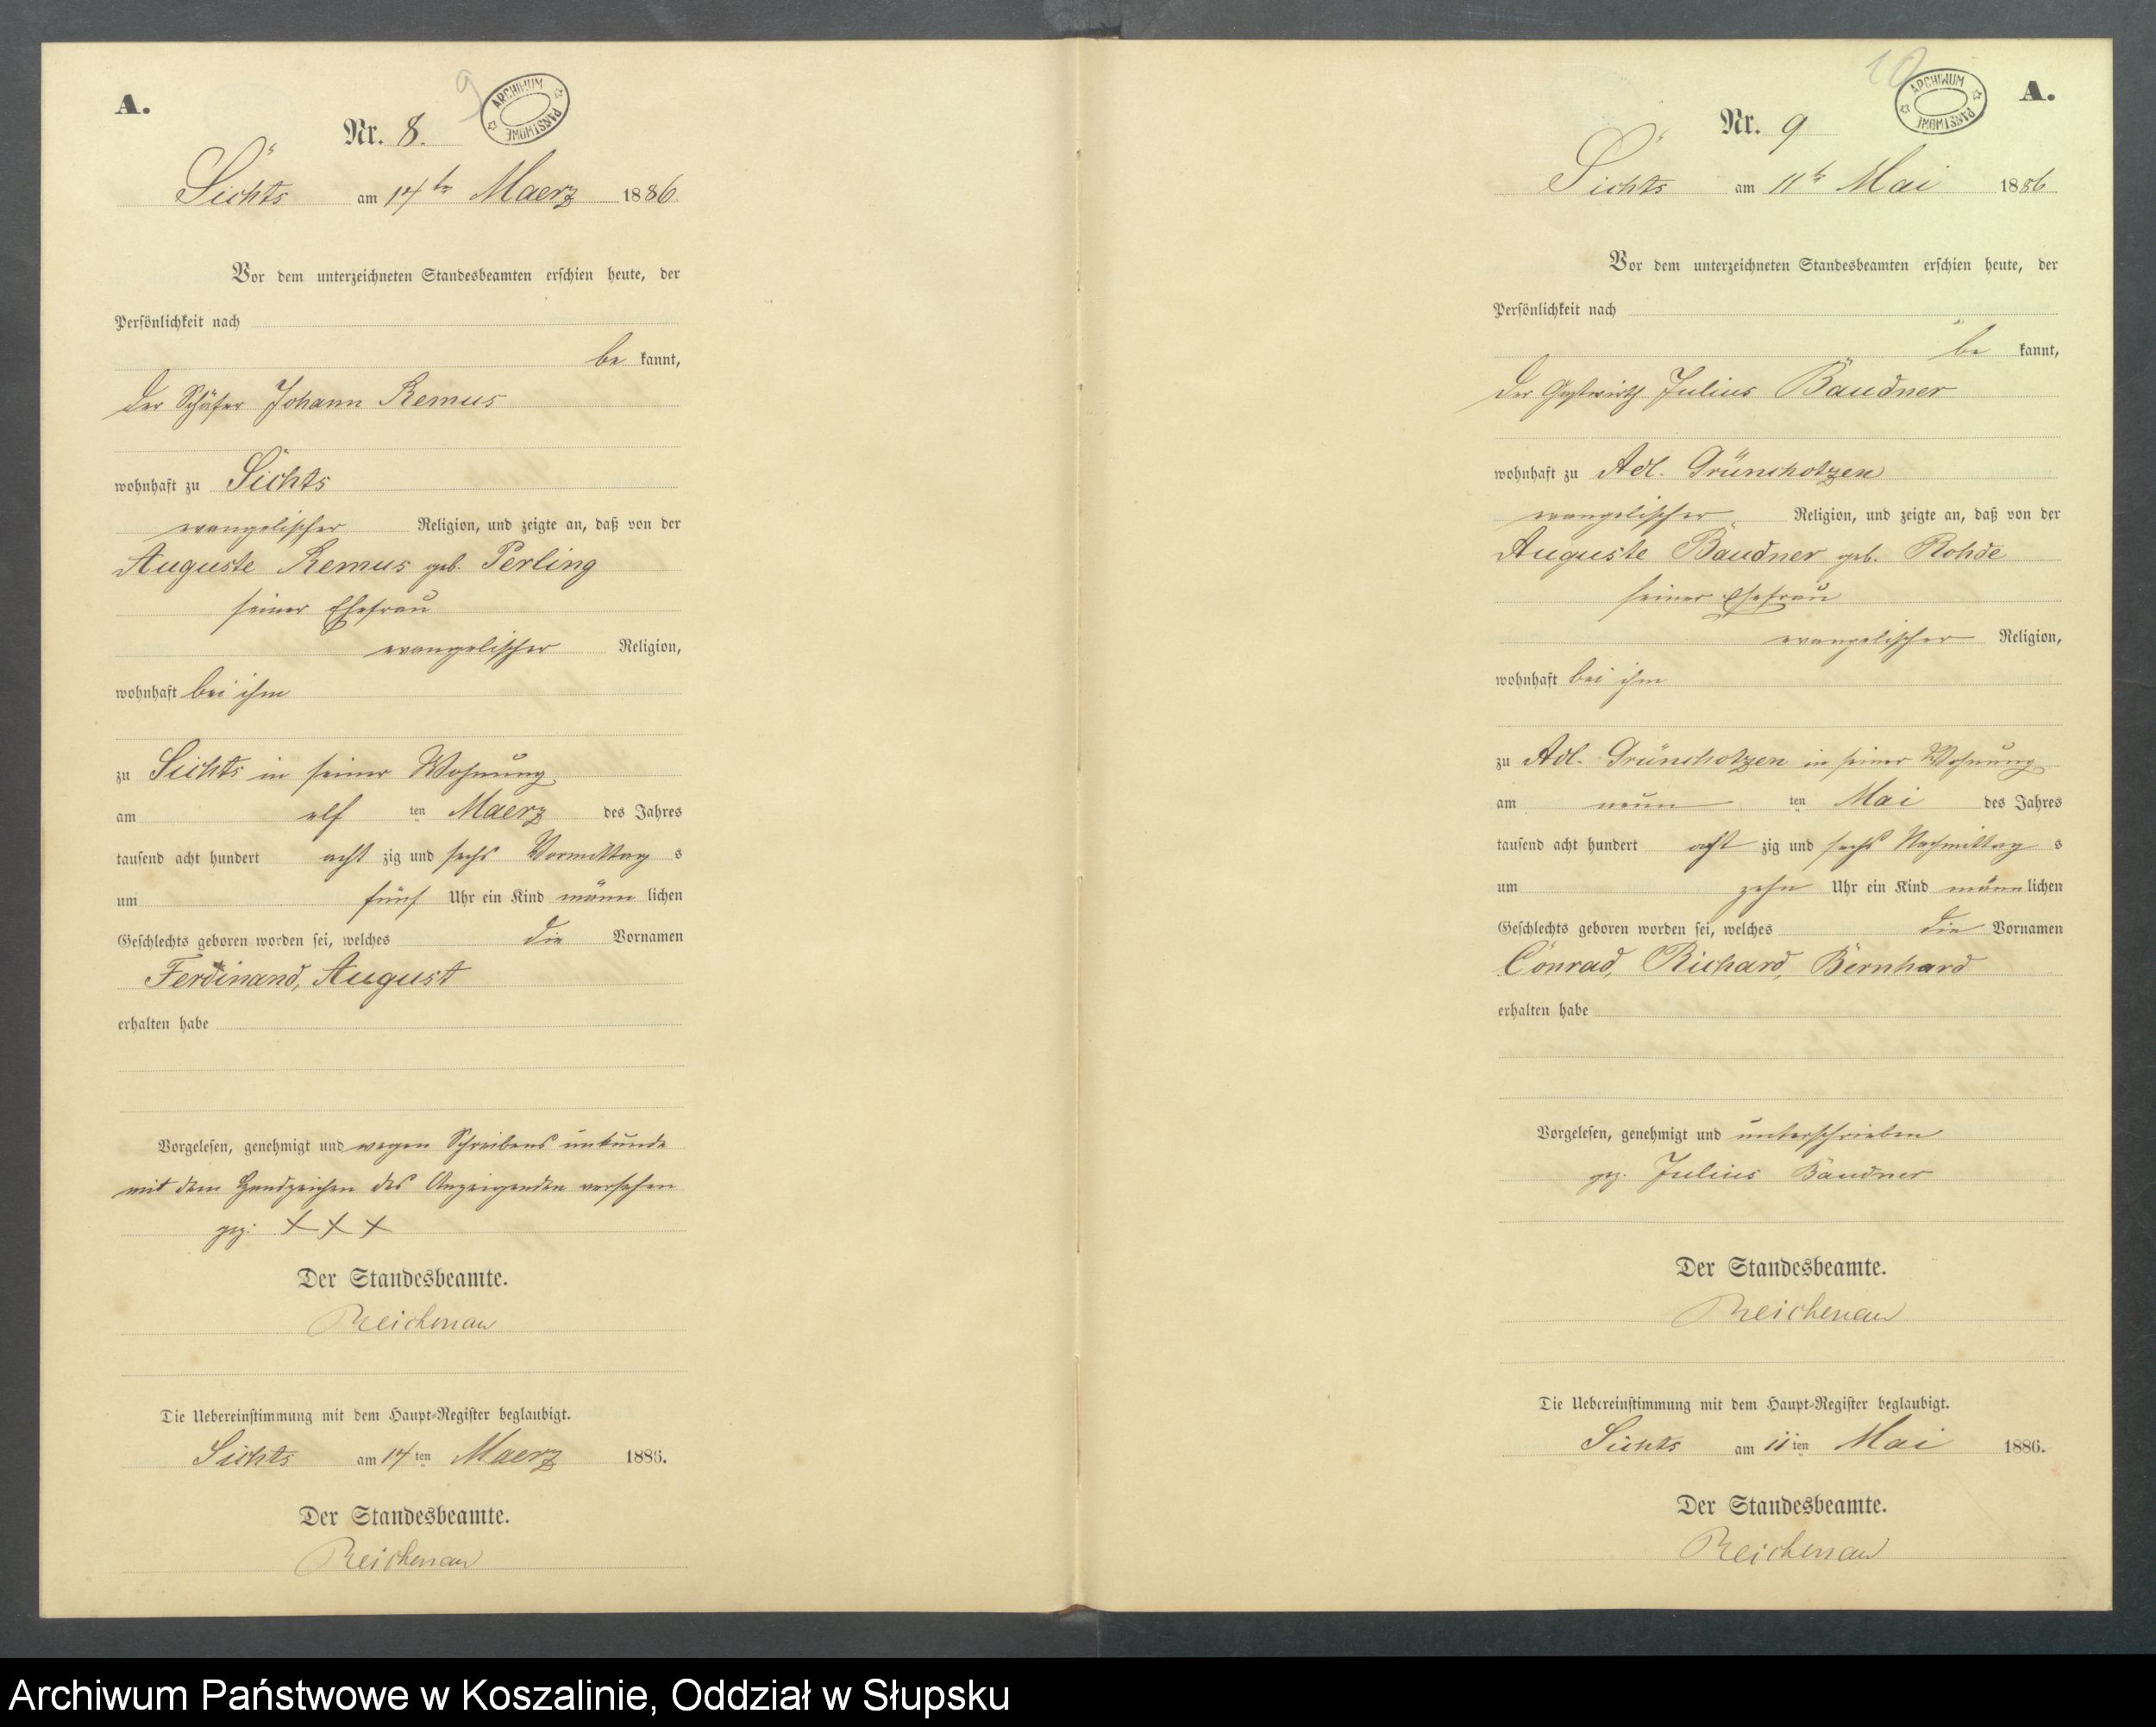 A.
9
ARCHIWUM PAŃSTWOWE
Nr. 8.
Sichts am 14ten Maerz 1886.
Vor dem unterzeichneten Standesbeamten erschien heute, der
Persönlichkeit nach
be kannt,
der Schäfer Johann Remus
wohnhaft zu Sichts
evangelischer Religion, und zeigte an, daß von der
Auguste Remus geb. Perling
seiner Ehefrau
evangelischer Religion,
wohnhaft bei ihm
zu Sichts in seiner Wohnung
am elf ten Maerz des Jahres
tausend acht hundert acht zig und sechs Vormittag s
um fünf Uhr ein Kind männ lichen
Geschlechts geboren worden sei, welches die Vornamen
Ferdinand, August
erhalten habe
Vorgelesen, genehmigt und wegen Schreibens unkunde
mit dem Handzeichen des Anzeigenden versehen
gez. XXX
Der Standesbeamte.
Reichenau
Die Uebereinstimmung mit dem Haupt-Register beglaubigt.
Sichts am 14 ten Maerz 1886.
Der Standesbeamte.
Reichenau
10
ARCHIWUM PAŃSTWOWE
A.
Nr. 9
Sichts am 11ten Mai 1886
Vor dem unterzeichneten Standesbeamten erschien heute, der
Persönlichkeit nach
be kannt,
der Gastwirth Julius Baudner
wohnhaft zu Adl. Grünchotzen
evangelischer Religion, und zeigte an, daß von der
Auguste Baudner geb. Rohde
seiner Ehefrau
evangelischer Religion,
wohnhaft bei ihm
zu Adl. Grünchotzen in seiner Wohnung
am neun ten Mai des Jahres
tausend acht hundert acht zig und sechs Nachmittag s
um zehn Uhr ein Kind männ lichen
Geschlechts geboren worden sei, welches die Vornamen
Conrad, Richard, Bernhard
erhalten habe
Vorgelesen, genehmigt und unterschrieben
gez. Julius Baudner
Der Standesbeamte.
Reichenau
Die Uebereinstimmung mit dem Haupt-Register beglaubigt.
Sichts am 11 ten Mai 1886.
Der Standesbeamte.
Reichenau
Archiwum Państwowe w Koszalinie, Oddział w Słupsku